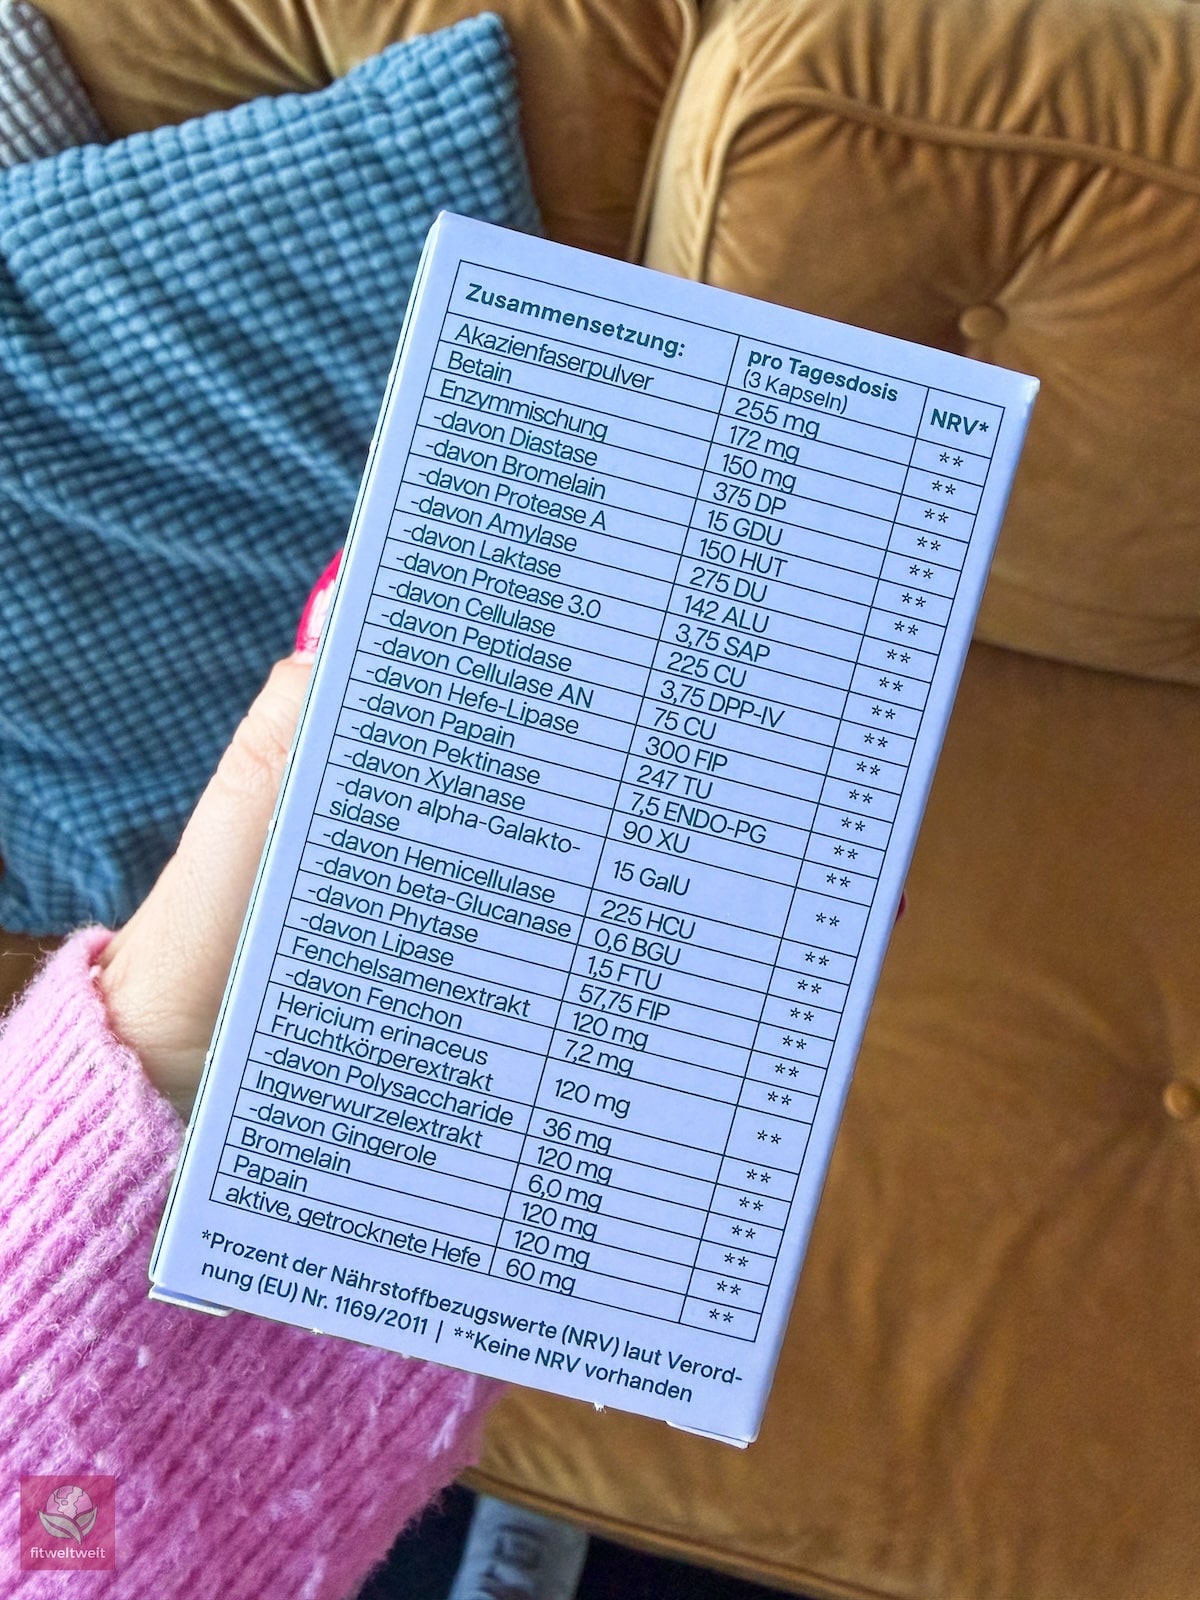 Zusammensetzung: pro Tagesdosis (3 Kapseln) NRV*
Akazienfaserpulver 255 mg **
Betain 172 mg **
Enzymmischung 150 mg **
-davon Diastase 375 DP **
-davon Bromelain 15 GDU **
-davon Protease A 150 HUT **
-davon Amylase 275 DU **
-davon Laktase 142 ALU **
-davon Protease 3.0 3,75 SAP **
-davon Cellulase 225 CU **
-davon Peptidase 3,75 DPP-IV **
-davon Cellulase AN 75 CU **
-davon Hefe-Lipase 300 FIP **
-davon Papain 247 TU **
-davon Pektinase 7,5 ENDO-PG **
-davon Xylanase 90 XU **
-davon alpha-Galakto-
sidase 15 GalU **
-davon Hemicellulase 225 HCU **
-davon beta-Glucanase 0,6 BGU **
-davon Phytase 1,5 FTU **
-davon Lipase 57,75 FIP **
Fenchelsamenextrakt 120 mg **
-davon Fenchon 7,2 mg **
Hericium erinaceus
Fruchtkörperextrakt 120 mg **
-davon Polysaccharide 36 mg **
Ingwerwurzelextrakt 120 mg **
-davon Gingerole 6,0 mg **
Bromelain 120 mg **
Papain 120 mg **
aktive, getrocknete Hefe 60 mg **
*Prozent der Nährstoffbezugswerte (NRV) laut Verord-
nung (EU) Nr. 1169/2011 | **Keine NRV vorhanden
fitweltweit